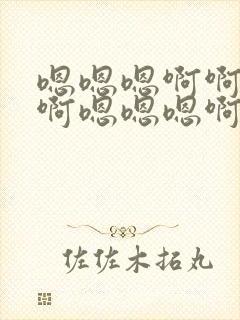 嗯嗯嗯啊啊
啊嗯嗯嗯啊
佐佐木拓丸